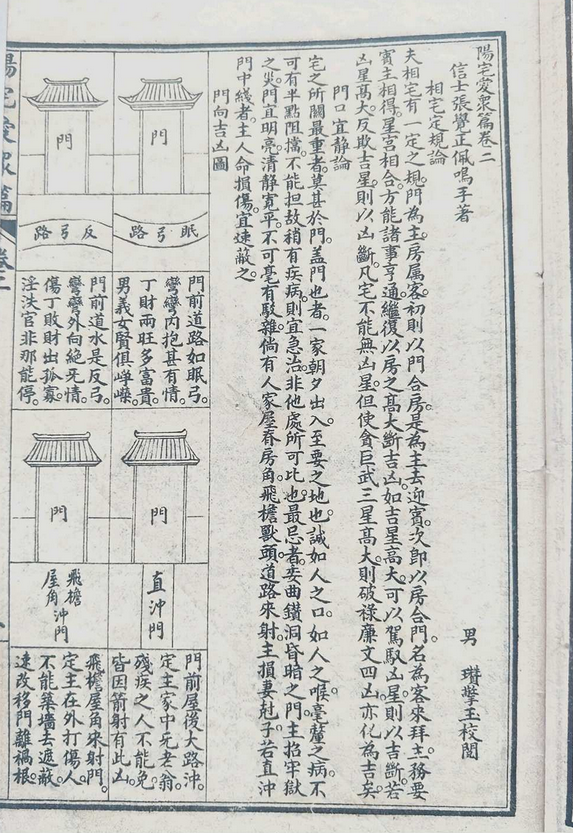 陽宅愛眾篇卷二
信士張覺正佩鳴手著
男 瓚擎玉校閱
相宅定規論
夫相宅有一定之規門為主房屬客初則以門合房是為主去迎賓次郎以房合門名為客來拜主務要
賓主相得星宮相合方能諸事亨通繼復以房之高大斷吉凶如吉星高大可以駕馭凶星則以吉斷若
凶星高大反欺吉星則以凶斷凡宅不能無凶星但使貪巨武三星高大則破祿廉文四凶亦化為吉矣
門口宜靜論
宅之所關最重者莫甚於門蓋門也者一家朝夕出入至要之地也誠如人之口如人之喉毫釐之病不
可有半點阻擋不能担故稍有疾病則宜急治非他處所可比也最忌者委曲鑽洞昏暗之門主招牢獄
之災門宜明亮清靜寬平不可毫有駁雜倘有人家屋脊房角飛檐獸頭道路來射主損妻尅子若直沖
門中綫者主人命損傷宜速蔽之
門向吉凶圖
門
眠弓路
門前道路如眠弓
彎彎內抱甚有情
丁財兩旺多富貴
男義女賢俱崢嶸
門
反弓路
門前道水是反弓
彎彎外向絕旡情
傷丁敗財出孤寡
淫泆官非那能停
門
直沖門
門前屋後大路沖
定主家中旡老翁
殘疾之人不能免
皆因箭射有此凶
門
飛檐
屋角沖門
飛檐屋角來射門
定主在外打傷人
不能築墻去遮蔽
速改移門離禍根
陽宅愛眾篇
卷二